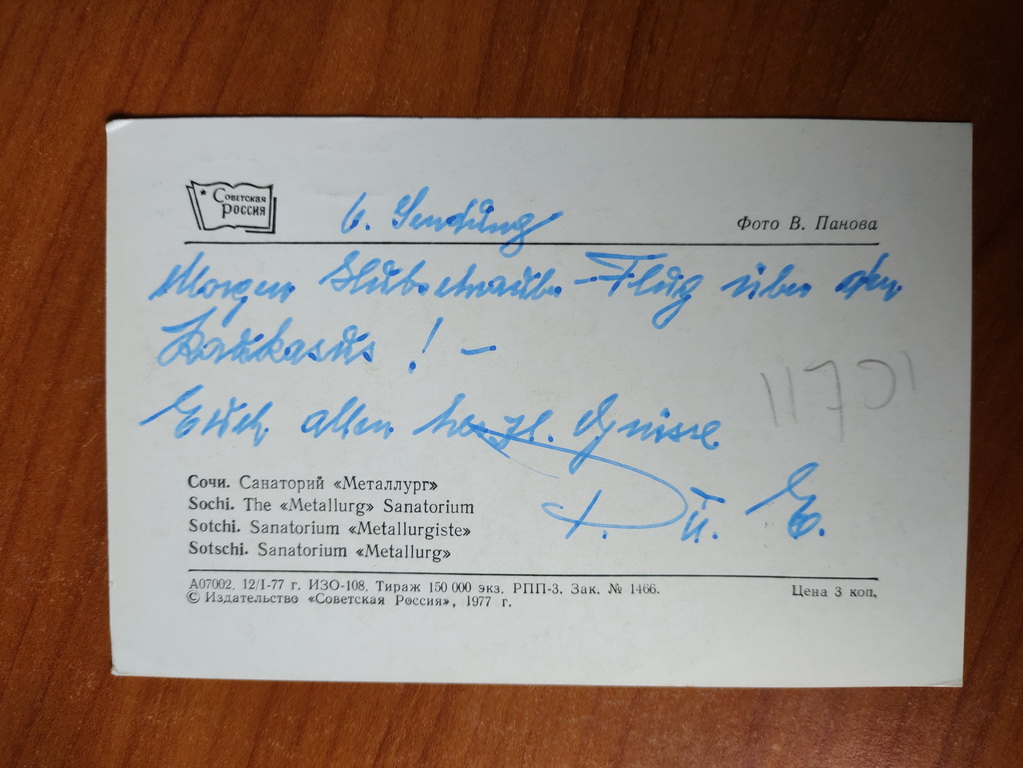 Советская
Россия
6. Sendung
Фото В. Панова
Morgen Hubschrauber-Flug über den
Kaukasus ! –
Euch allen herzl. Grüsse
P. u. E.
11701
Сочи. Санаторий «Металлург»
Sochi. The «Metallurg» Sanatorium
Sotchi. Sanatorium «Metallurgiste»
Sotschi. Sanatorium «Metallurg»
А07002. 12/I-77 г. ИЗО-108. Тираж 150 000 экз. РПП-3. Зак. № 1466.
Цена 3 коп.
© Издательство «Советская Россия», 1977 г.